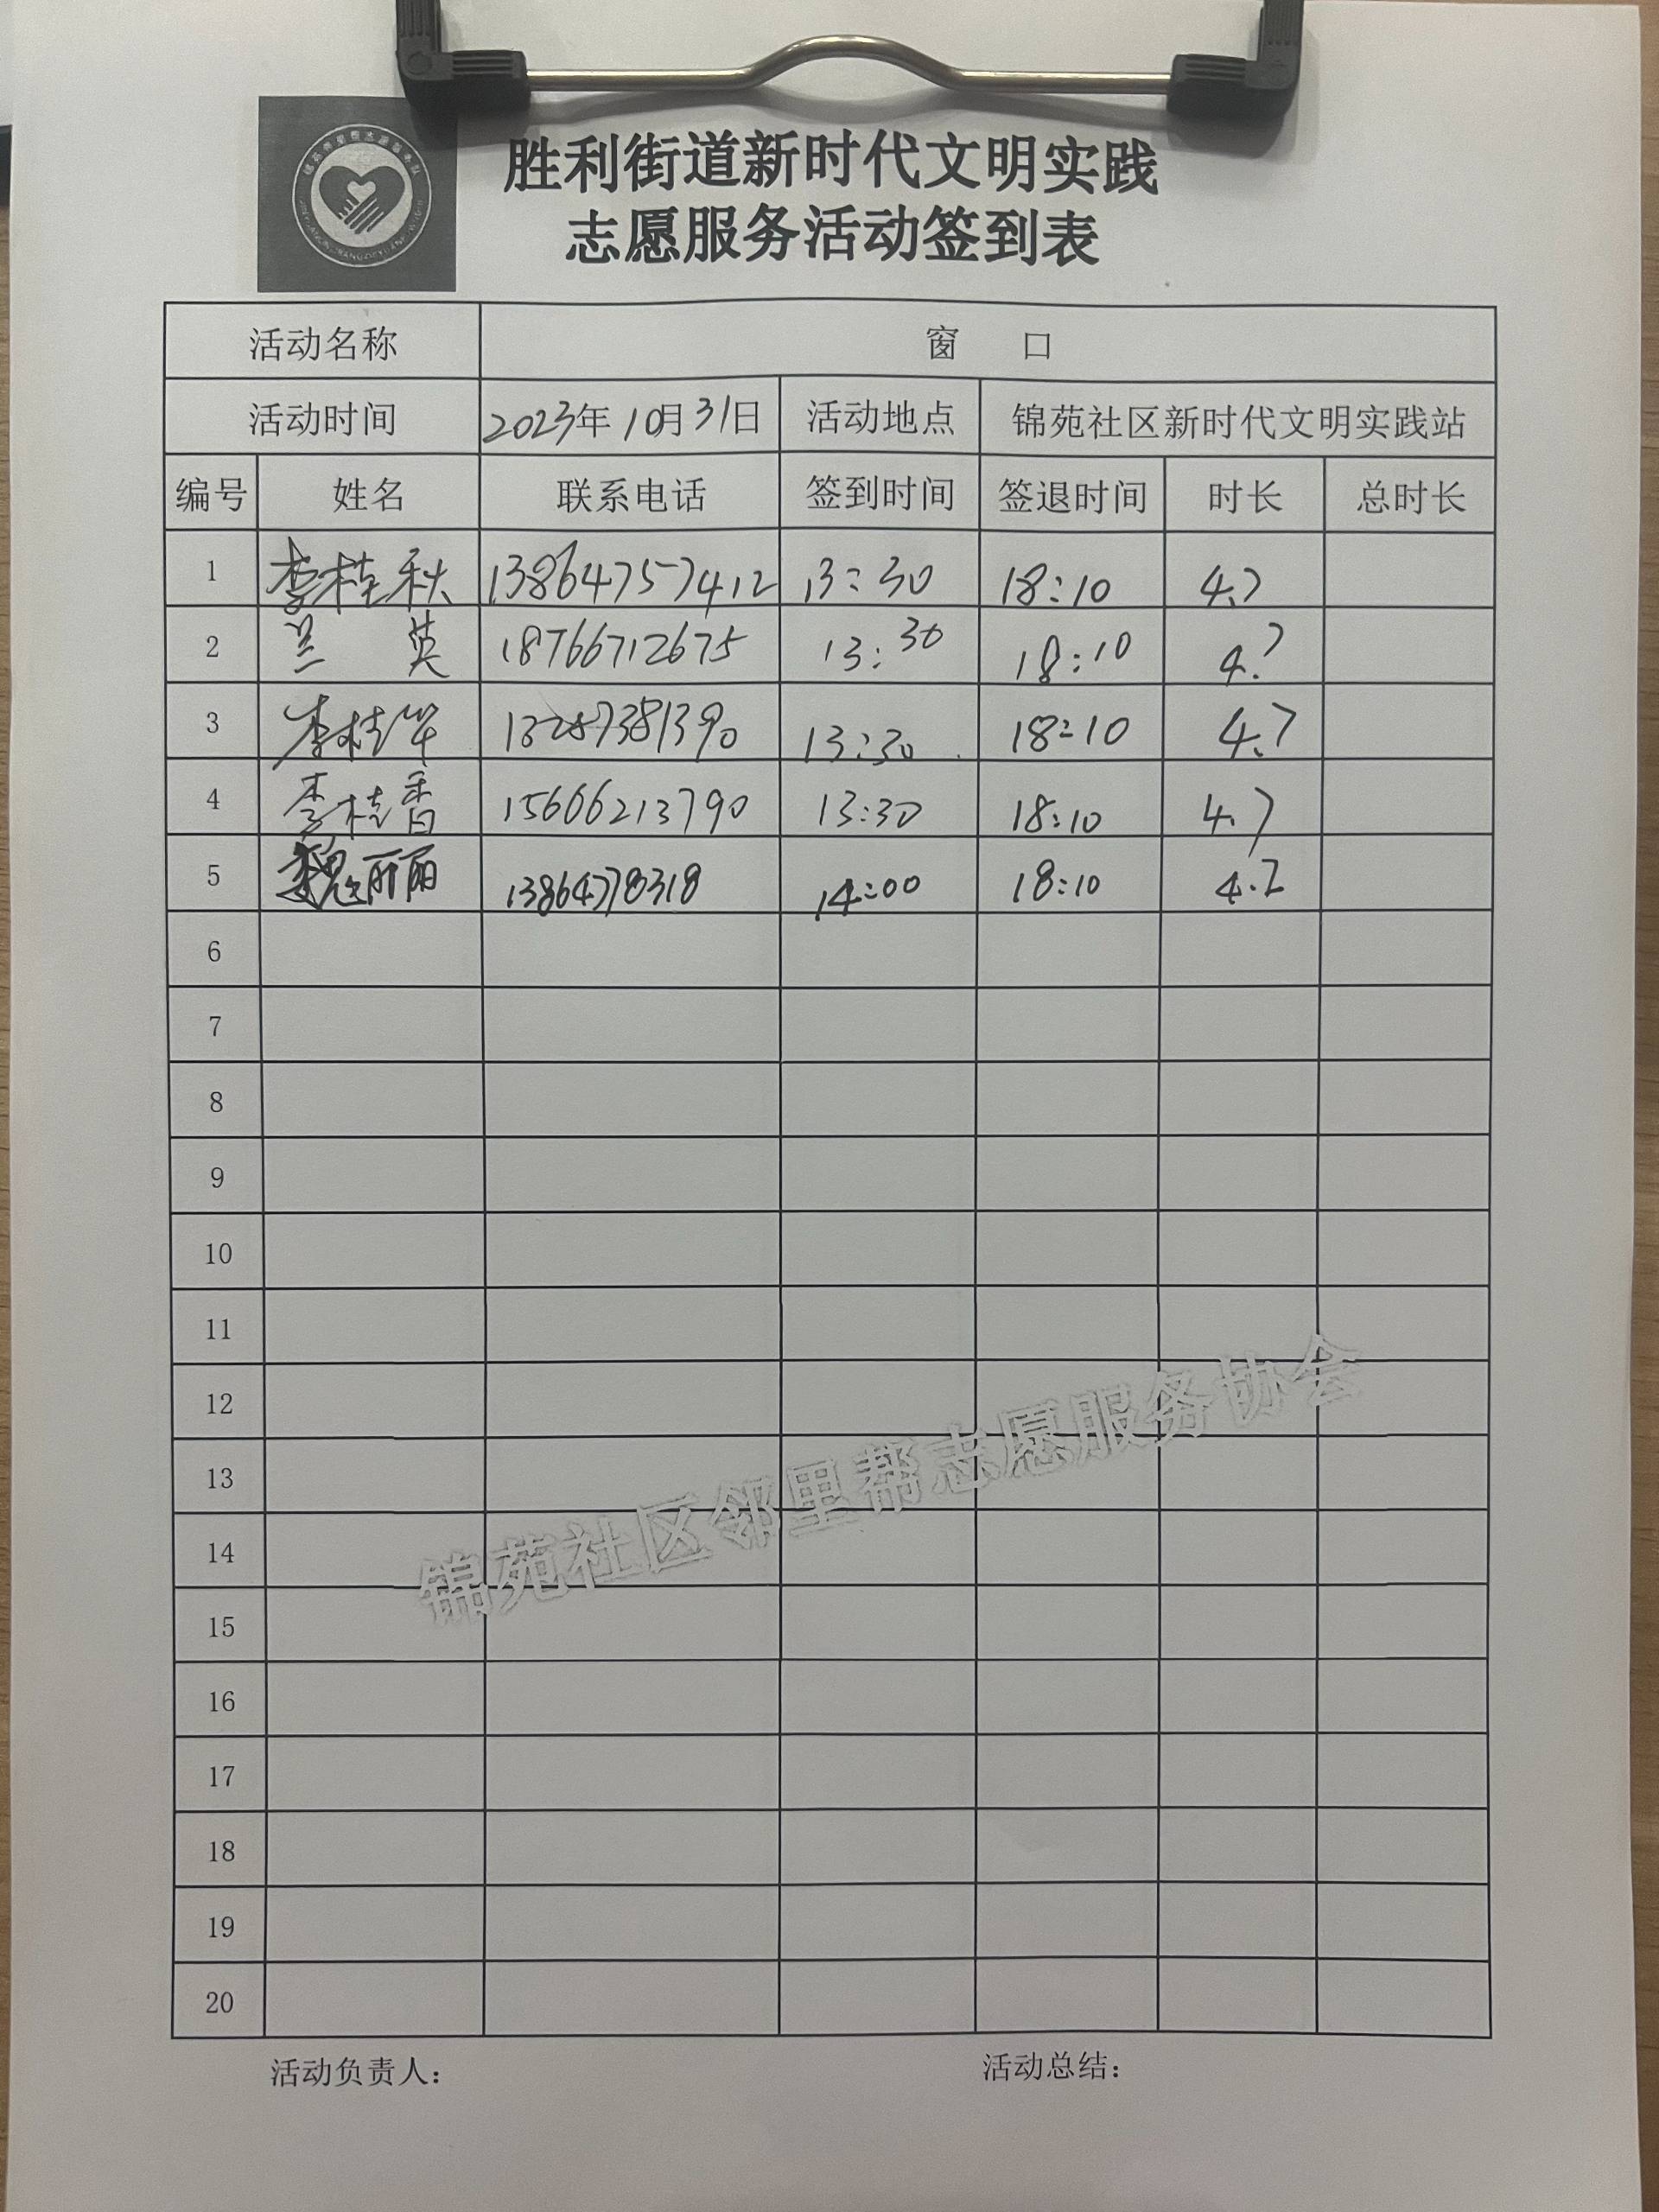 胜利街道新时代文明实践
志愿服务活动签到表
活动名称 窗 口
活动时间 2023年10月31日 活动地点 锦苑社区新时代文明实践站
编号 姓名 联系电话 签到时间 签退时间 时长 总时长
1 李桂秋 13864757412 13:30 18:10 4.7
2 兰 英 18766712675 13:30 18:10 4.7
3 李桂华 13287381390 13:30 18:10 4.7
4 李桂香 15606213790 13:30 18:10 4.7
5 魏丽丽 13864778318 14:00 18:10 4.2
6
7
8
9
10
11
12
13
14
15
16
17
18
19
20
锦苑社区邻里帮志愿服务协会
活动负责人： 活动总结：